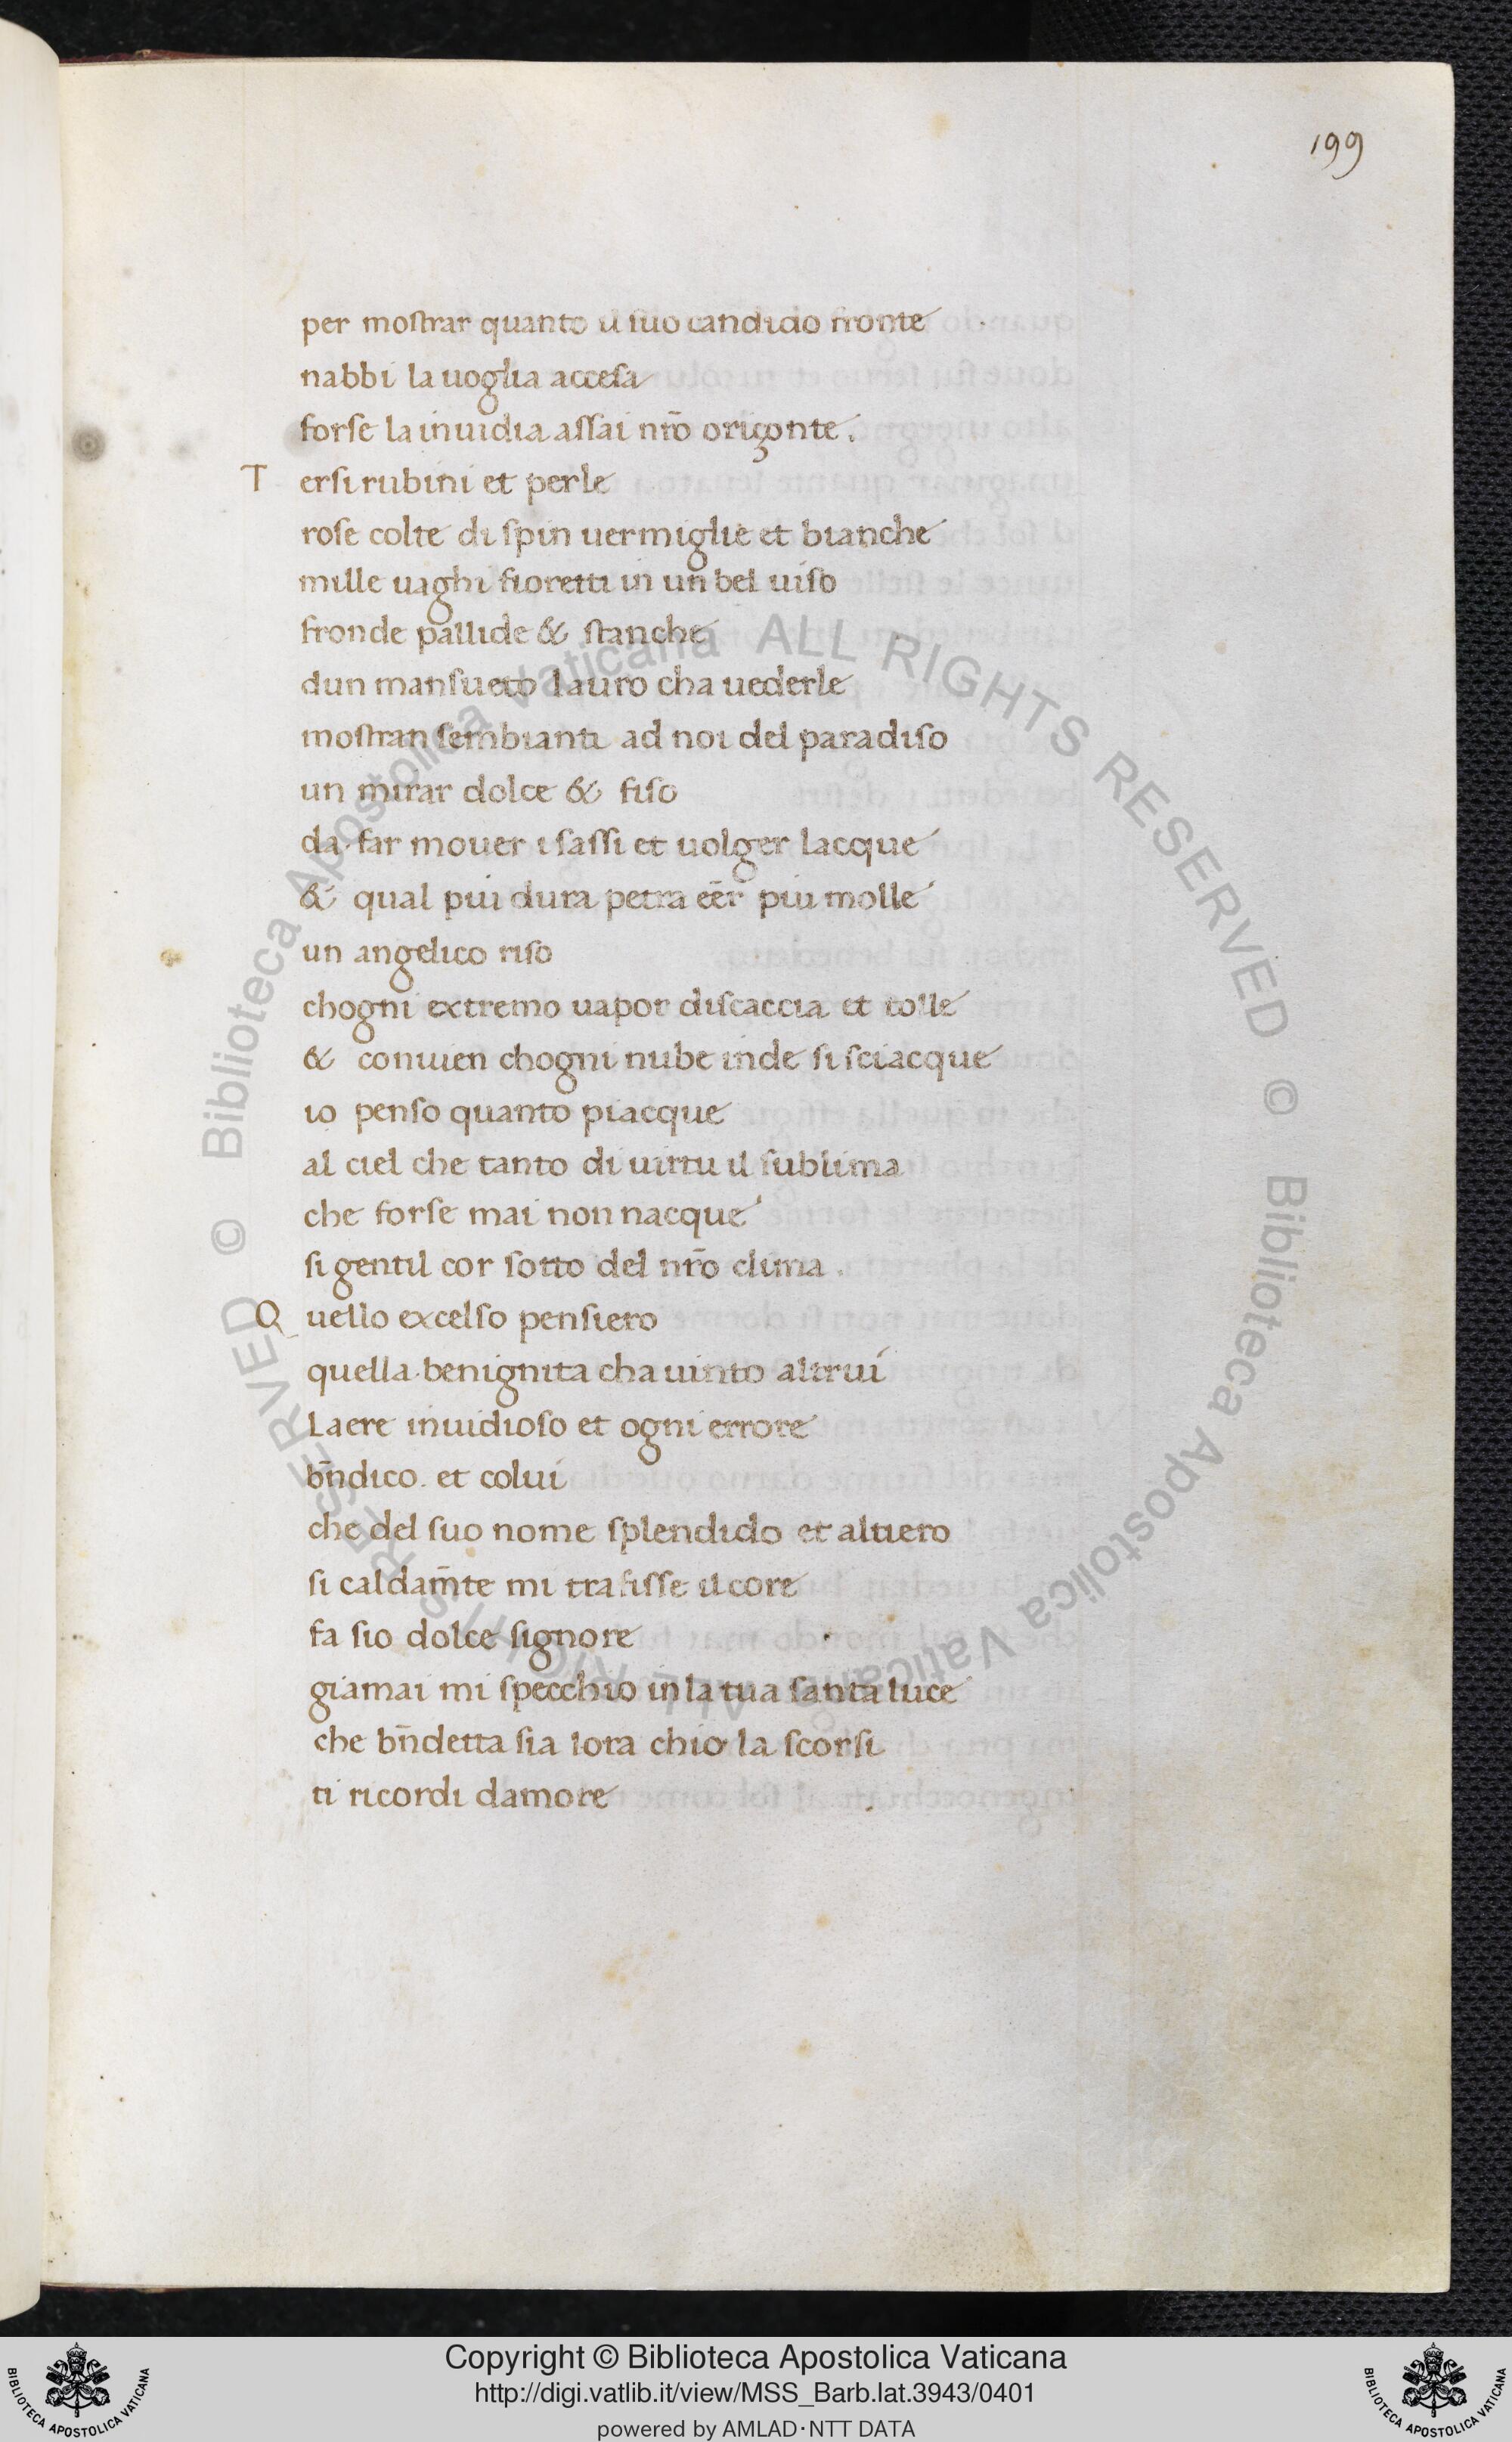 199
per mostrar quanto il suo candido fronte
nabbi la uoglia accesa
forse la inuidia assai nr̃o oriçonte.
T ersi rubini et perle
rose colte di spin uermiglie et bianche
mille uaghi fioretti in un bel uiso
fronde pallide & stanche
dun mansueto lauro cha uederle
mostran sembianti ad noi del paradiso
un mirar dolce & fiso
da far mouer i sassi et uolger lacque
& qual piu dura petra eẽr piu molle
un angelico riso
chogni extremo uapor discaccia et tolle
& conuien chogni nube inde si sciacque
io penso quanto piacque
al ciel che tanto di uirtu il sublima
che forse mai non nacque
si gentil cor sotto del nr̃o clima.
Q uello excelso pensiero
quella benignita cha uinto altrui
Laere inuidioso et ogni errore
bñdico. et colui
che del suo nome splendido et altiero
si caldam̃te mi trafisse il core
fa sio dolce signore
giamai mi specchio in la tua santa luce
che bñdetta sia lora chio la scorsi
ti ricordi damore
© Biblioteca Apostolica Vaticana ALL RIGHTS RESERVED © Biblioteca Apostolica Vaticana ALL RIGHTS RESERVED
Copyright © Biblioteca Apostolica Vaticana
http://digi.vatlib.it/view/MSS_Barb.lat.3943/0401
powered by AMLAD·NTT DATA
BIBLIOTECA APOSTOLICA VATICANA
BIBLIOTECA APOSTOLICA VATICANA